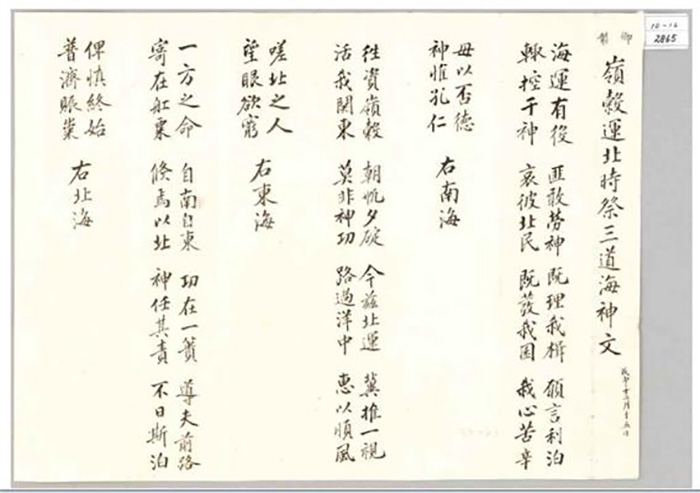 10-16
2865
御製
嶺穀運北時祭三道海神文
海運有役 匪敢勞神 既理我楫 願言利泊
輒控于神 哀彼北民 既發我囷 我心苦辛
毋以否德
神惟孔仁 右南海
往資嶺穀 朝帆夕碇 今玆北運 冀推一視
活我關東 莫非神功 路過洋中 惠以順風
嗟北之人
望眼欲窮 右東海
一方之命 自南自東 功在一簣 導夫前路
寄在舡粟 倏焉以北 神任其責 不日斯泊
俾慎終始
普濟賑業 右北海